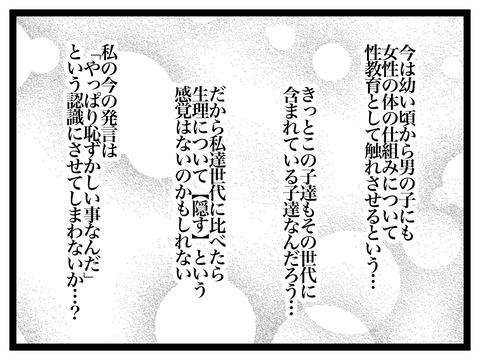 今は幼い頃から男の子にも
女性の体の仕組みについて
性教育として触れさせるという…
きっとこの子達もその世代に
含まれている子達なんだろう…
だから私達世代に比べたら
生理について【隠す】という
感覚はないのかもしれない
私の今の発言は
「やっぱり恥ずかしい事なんだ」
という認識にさせてしまわないか…？